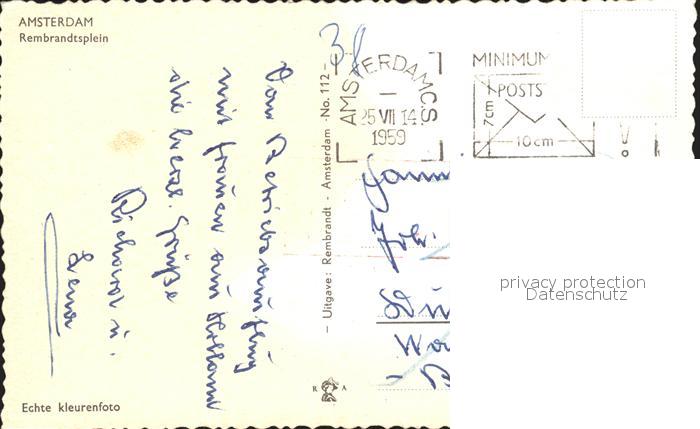 AMSTERDAM
Rembrandtsplein
Vom Betriebsausflug
mit Frauen aus Holland
die herzl. Grüße
Richard u.
Lena
Echte kleurenfoto
— Uitgave: Rembrandt - Amsterdam - No. 112 —
R A
38
AMSTERDAM C.S.
25 VII 14
1959
MINIMUM
POSTS
7cm
10cm
privacy protection
Datenschutz